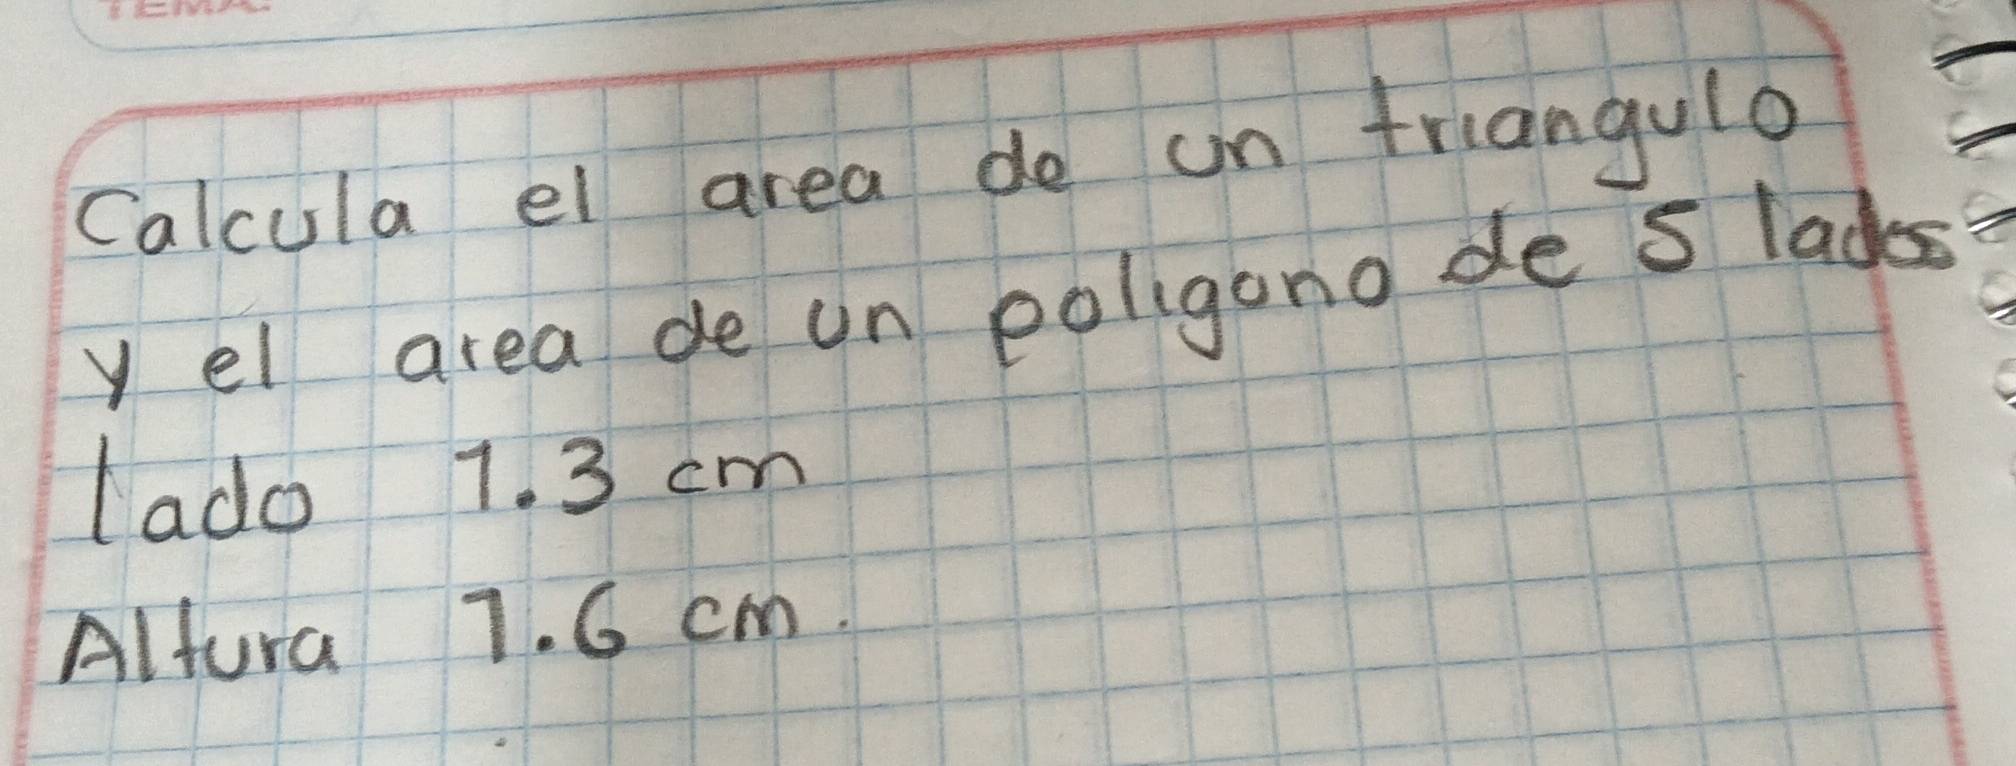 TEMA:
Calcula el area de un triangulo
y el area de un poligono de 5 lados
lado 1.3 cm
Altura 1.6 cm.